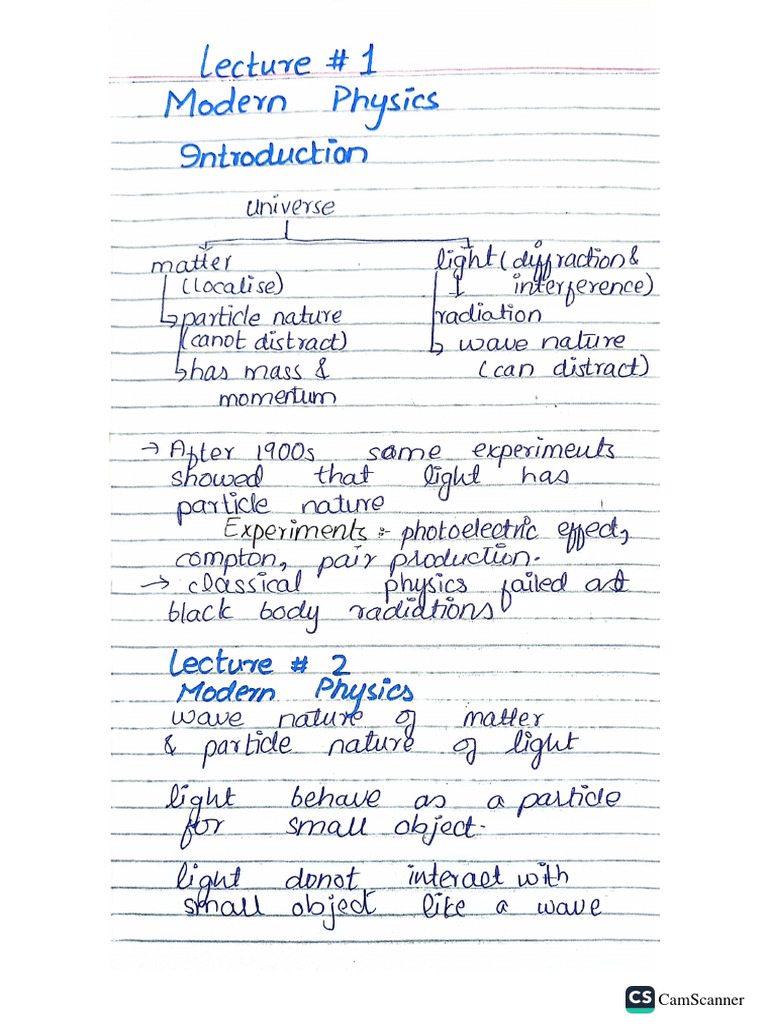 Lecture # 1
Modern Physics
Introduction
universe
matter
(localise)
particle nature
(canot distract)
has mass &
momentum
light (diffraction &
interference)
radiation
wave nature
(can distract)
→ After 1900s same experiments
showed that light has
particle nature
Experiments :- photoelectric effect,
compton, pair production.
→ classical physics failed at
black body radiations
Lecture # 2
Modern Physics
wave nature of matter
& particle nature of light
light behave as a particle
for small object.
light donot interact with
small object like a wave
CS CamScanner